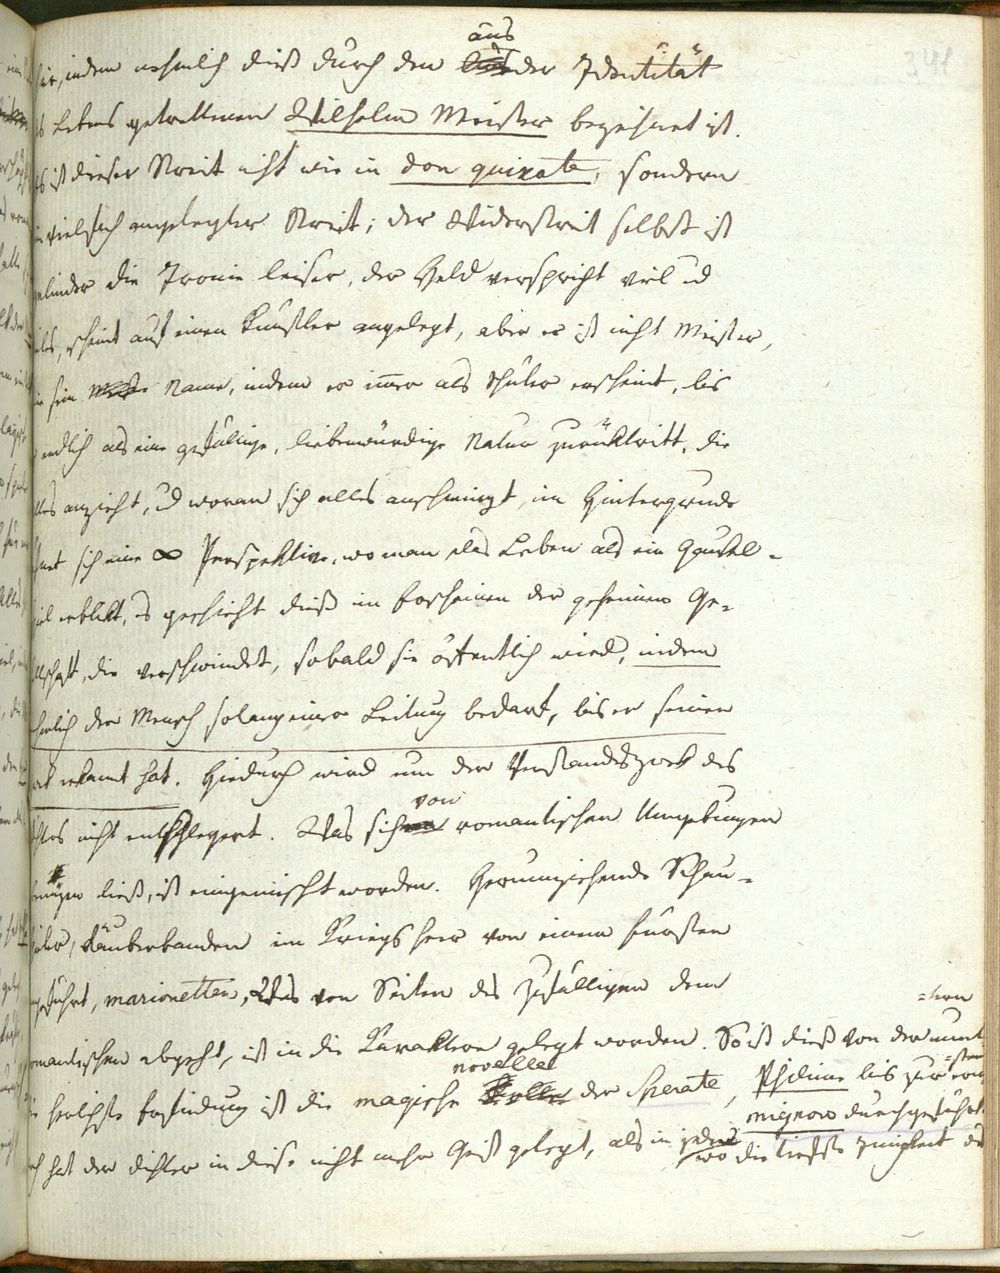 341
hier, indem nehmlich dieß durch den aus der Identität
Lebens getrettenen Wilhelm Meister bezeichnet ist.
ist dieser Streit nicht wie in don quixote, sondern
vielfach angelegter Streit; der Widerstreit selbst ist
gelinder die Ironie leiser, der Held verspricht viel ud
scheint auf einen Künstler angelegt, aber er ist nicht Meister,
sein Name, indem er imer als Schüler erscheint, bis
endlich als eine gefällige, liebenwürdige Natur zurüktritt, die
alles anzieht, ud woran sich alles anschmiegt, im Hintergrunde
sich eine ∞ Perspektive, wo man das Leben als ein Gaukel-
erblikt, es geschieht dieß im Erscheinen der geheimen Ge-
llschaft, die verschwindet, sobald sie öffentlich wird, indem
der Mensch solang einer Leitung bedarf, bis er seinen
erkannt hat. Hiedurch wird nun der Verstandeszwek des
nicht Was sich von romantischen Umgebungen
ließ, ist eingemischt worden. Herumziehende Schau-
Räuberbanden im Kriegs heer von einem Fürsten
angeführt, marionetten, Was von Seiten des Zufälligen dem
romantischen abgeht, ist in die Karaktere gelegt worden. So ist dieß von der munt
=tern
Philine bis zur
mignon durchgeführt
herlichste Erfindung ist die magische novelle der Sperate,
hat der Dichter in diese nicht mehr Geist gelegt, als in jeder
wo die tiefste Innigkeit